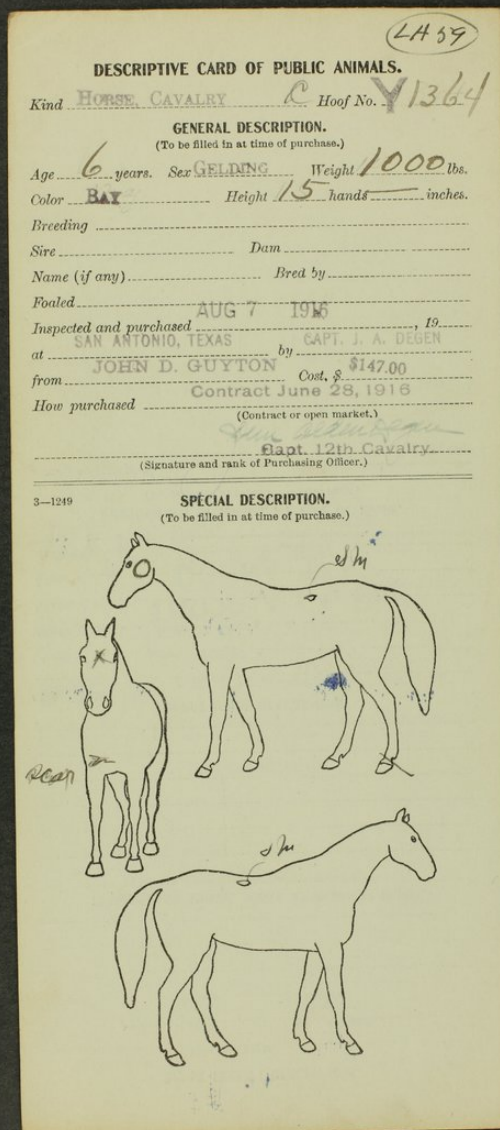 LH 59
DESCRIPTIVE CARD OF PUBLIC ANIMALS.
Kind HORSE, CAVALRY C Hoof No. Y1364
GENERAL DESCRIPTION.
(To be filled in at time of purchase.)
Age 6 years. Sex GELDING Weight 1000 lbs.
Color BAY Height 15 hands — inches.
Breeding
Sire Dam
Name (if any) Bred by
Foaled
Inspected and purchased AUG 7 1916, 19
at SAN ANTONIO, TEXAS by CAPT. J. A. DEGEN
from JOHN D. GUYTON Cost, $ $147.00
How purchased Contract June 28, 1916
(Contract or open market.)
Capt. 12th Cavalry.
(Signature and rank of Purchasing Officer.)
3—1249 SPECIAL DESCRIPTION.
(To be filled in at time of purchase.)
SM
Scar
SM